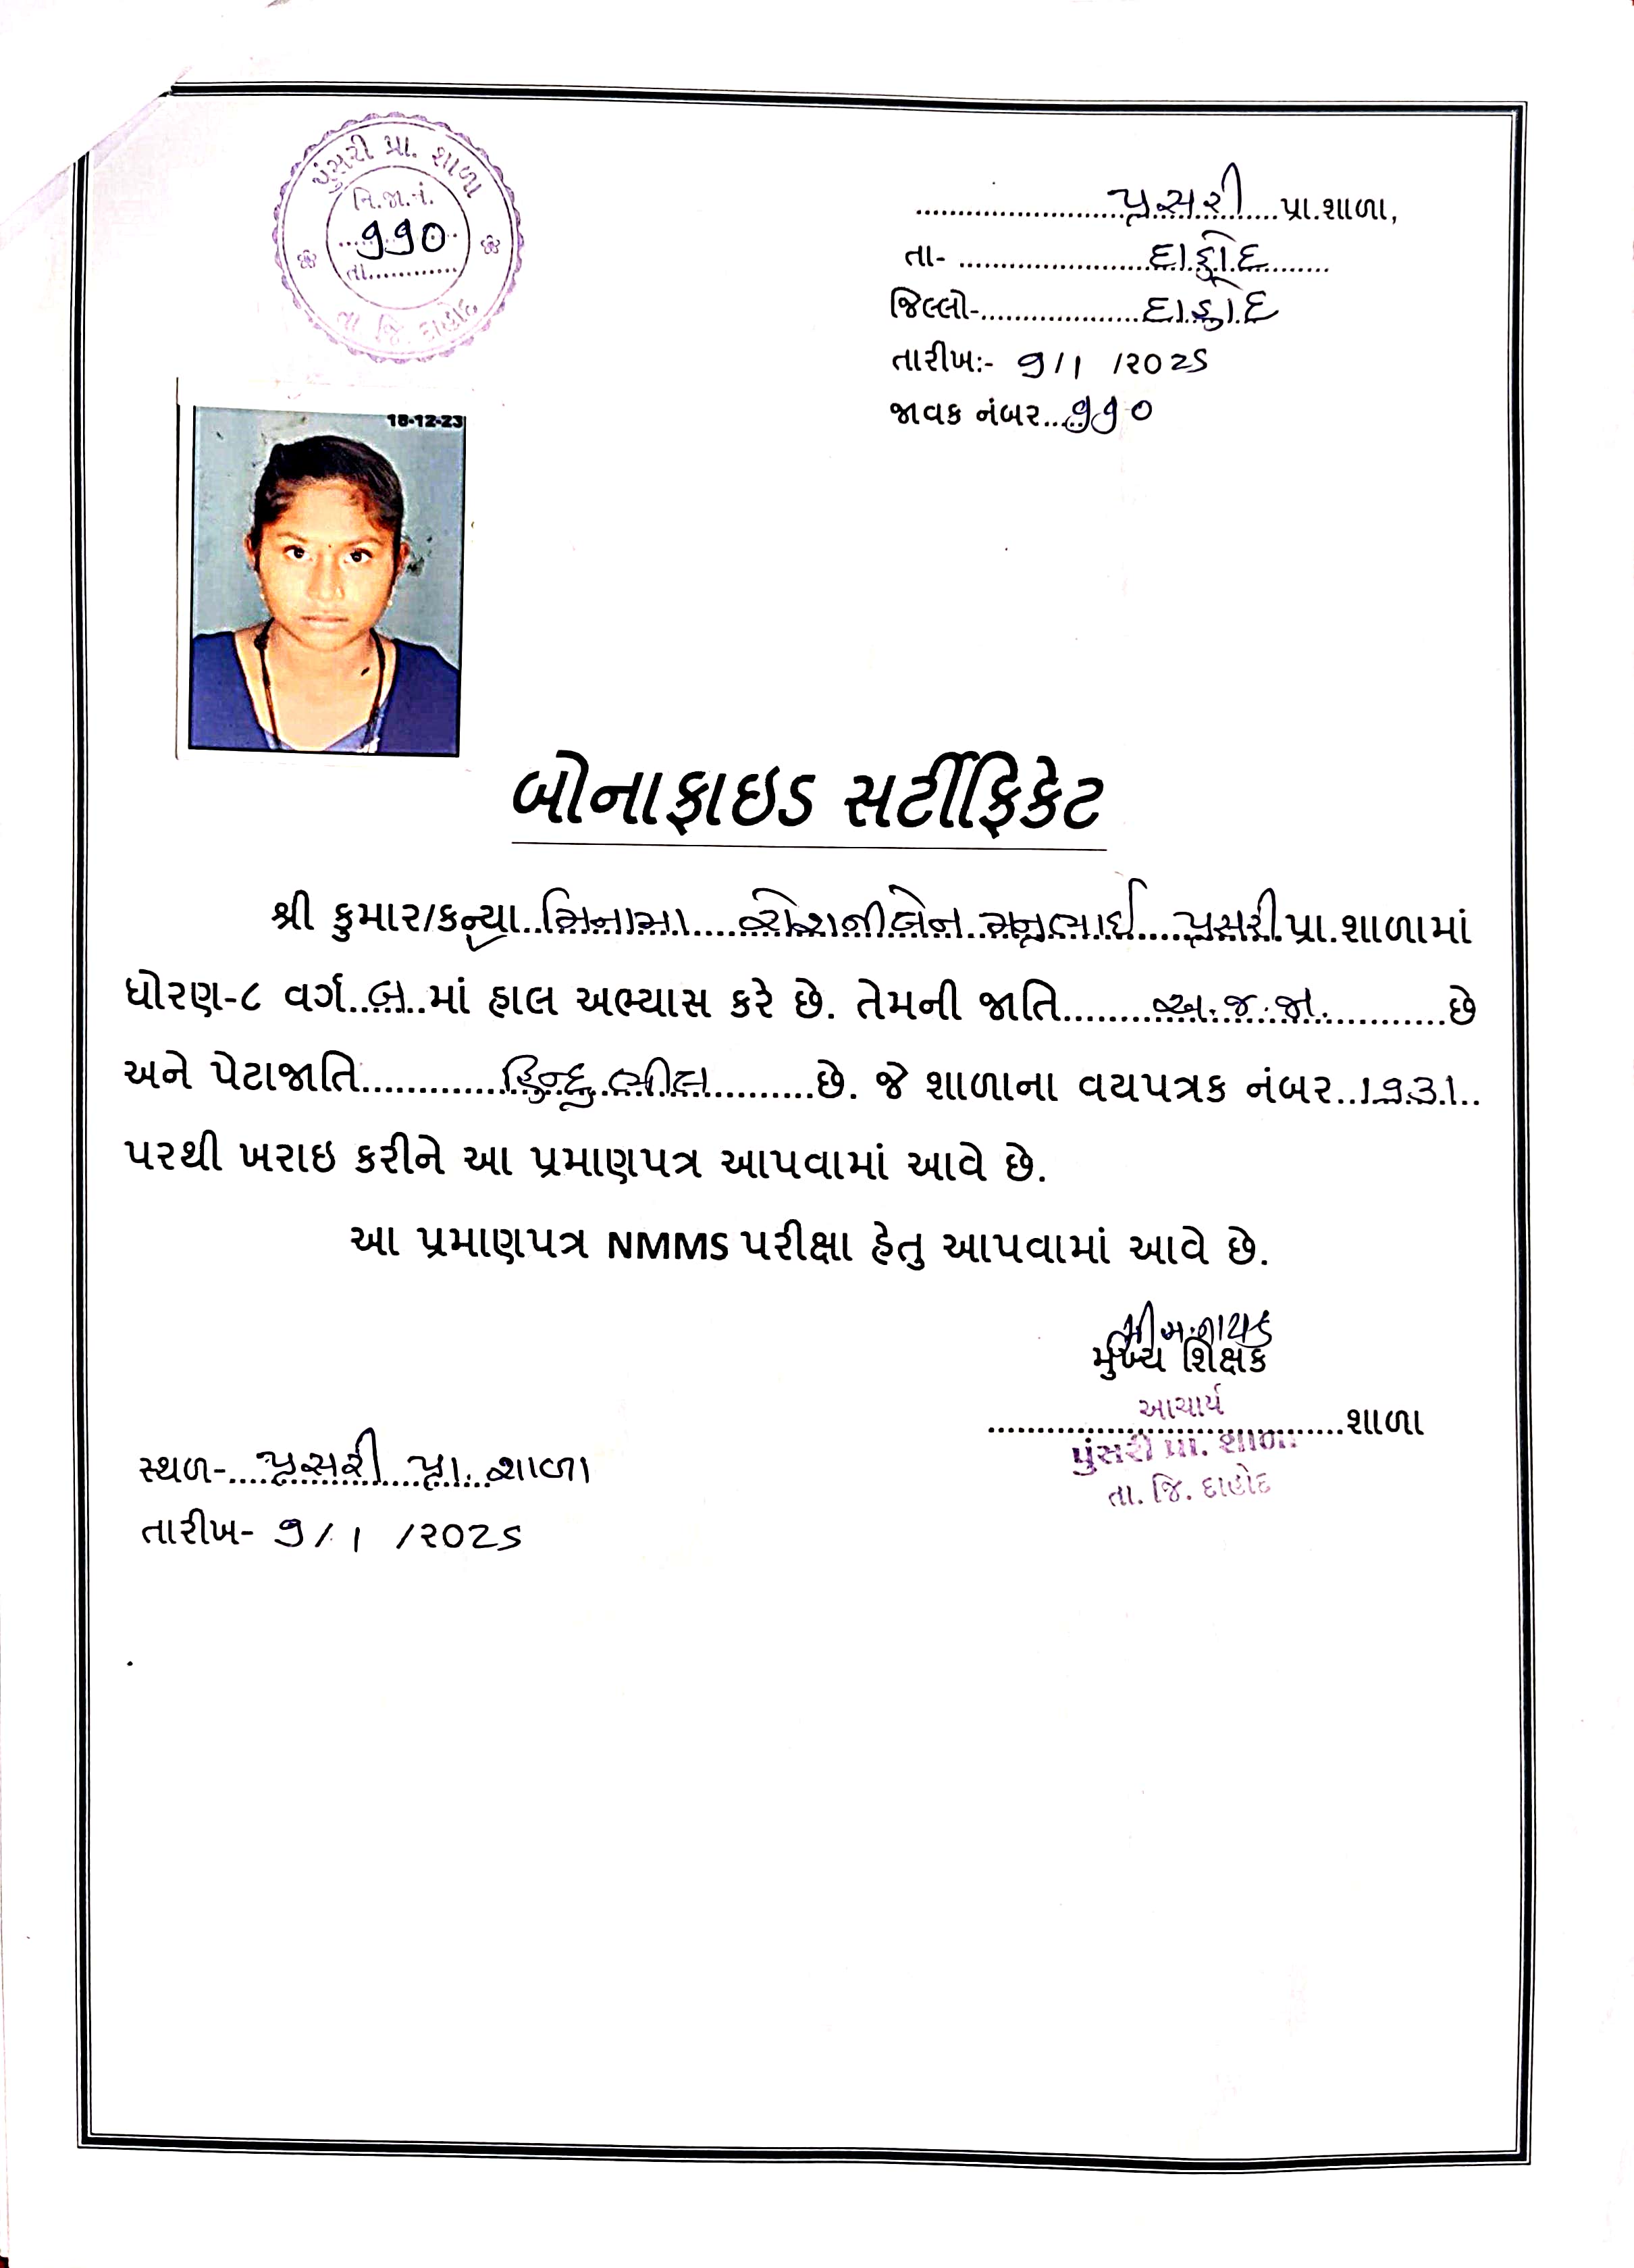 પુંસરી પ્રા. શાળા
નિ.જા.નં.
૧૧૦
તા............
તા જિ. દાહોદ
પુંસરી પ્રા.શાળા,
તા- દાહોદ
જિલ્લો- દાહોદ
તારીખ:- ૧/1 /૨૦૨૬
જાવક નંબર...૧૧૦
18-12-23
બોનાફાઇડ સર્ટીફિકેટ
શ્રી કુમાર/કન્યા..મિનામા....રોશનીબેન મનુભાઈ....પુંસરી પ્રા.શાળામાં
ધોરણ-૮ વર્ગ..બ..માં હાલ અભ્યાસ કરે છે. તેમની જાતિ.........અ.જ.જા.............છે
અને પેટાજાતિ.............હિન્દુ ભીલ..........છે. જે શાળાના વયપત્રક નંબર..1૧31..
પરથી ખરાઇ કરીને આ પ્રમાણપત્ર આપવામાં આવે છે.
આ પ્રમાણપત્ર NMMS પરીક્ષા હેતુ આપવામાં આવે છે.
મુખ્ય શિક્ષક
આચાર્ય
....................................શાળા
પુંસરી પ્રા. શાળા
તા. જિ. દાહોદ
સ્થળ-....પુંસરી પ્રા. શાળા
તારીખ- ૧/1 /૨૦૨૬